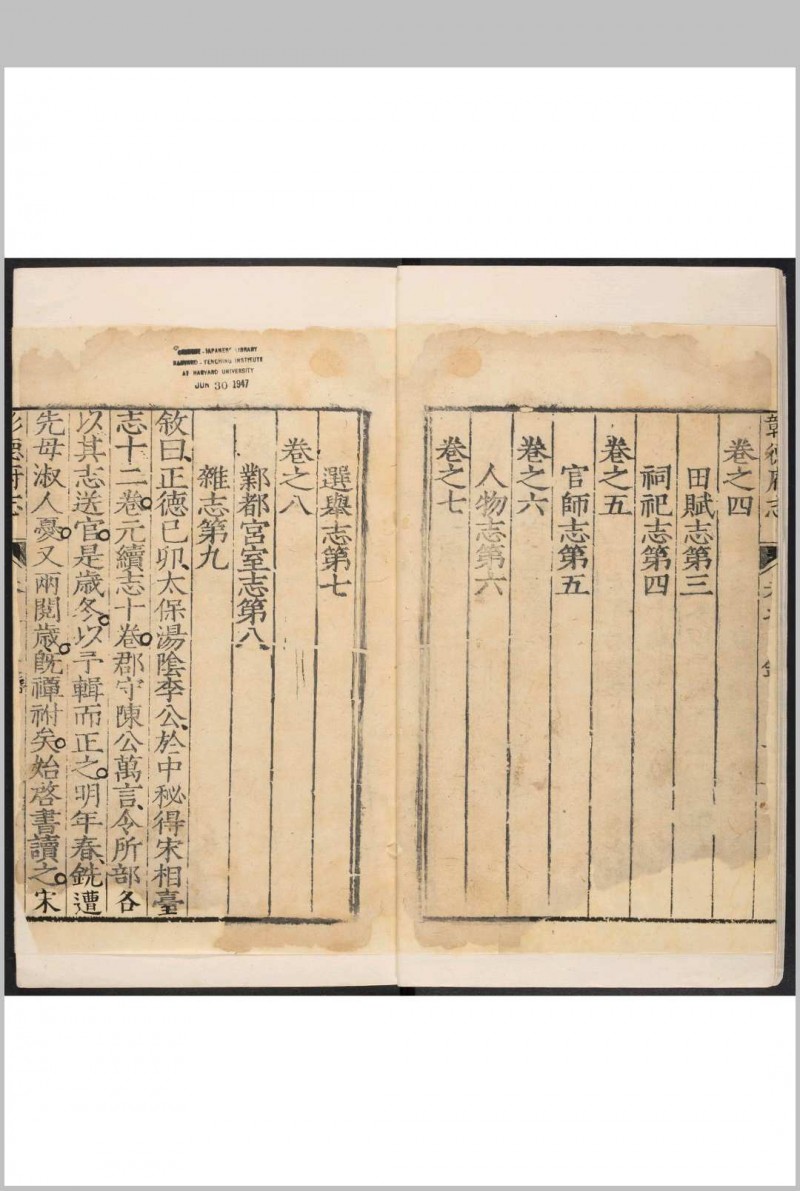 卷之四
田賦志第三
祠祀志第四
卷之五
官師志第五
卷之六
人物志第六
卷之七
選舉志第七
卷之八
鄴都宮室志第八
雜志第九
敘曰、正德己卯、太保湯陰李公、於中秘得宋相臺
志十二卷。元續志十卷。郡守陳公萬言、令所部各
以其志送官。是歲冬。以予輯而正之。明年春、銑遭
先母淑人憂。又兩閱歲。旣禫祔矣。始啓書讀之。宋
彰德府志
JAPANESE LIBRARY
HARVARD-YENCHING INSTITUTE
AT HARVARD UNIVERSITY
JUN 30 1947